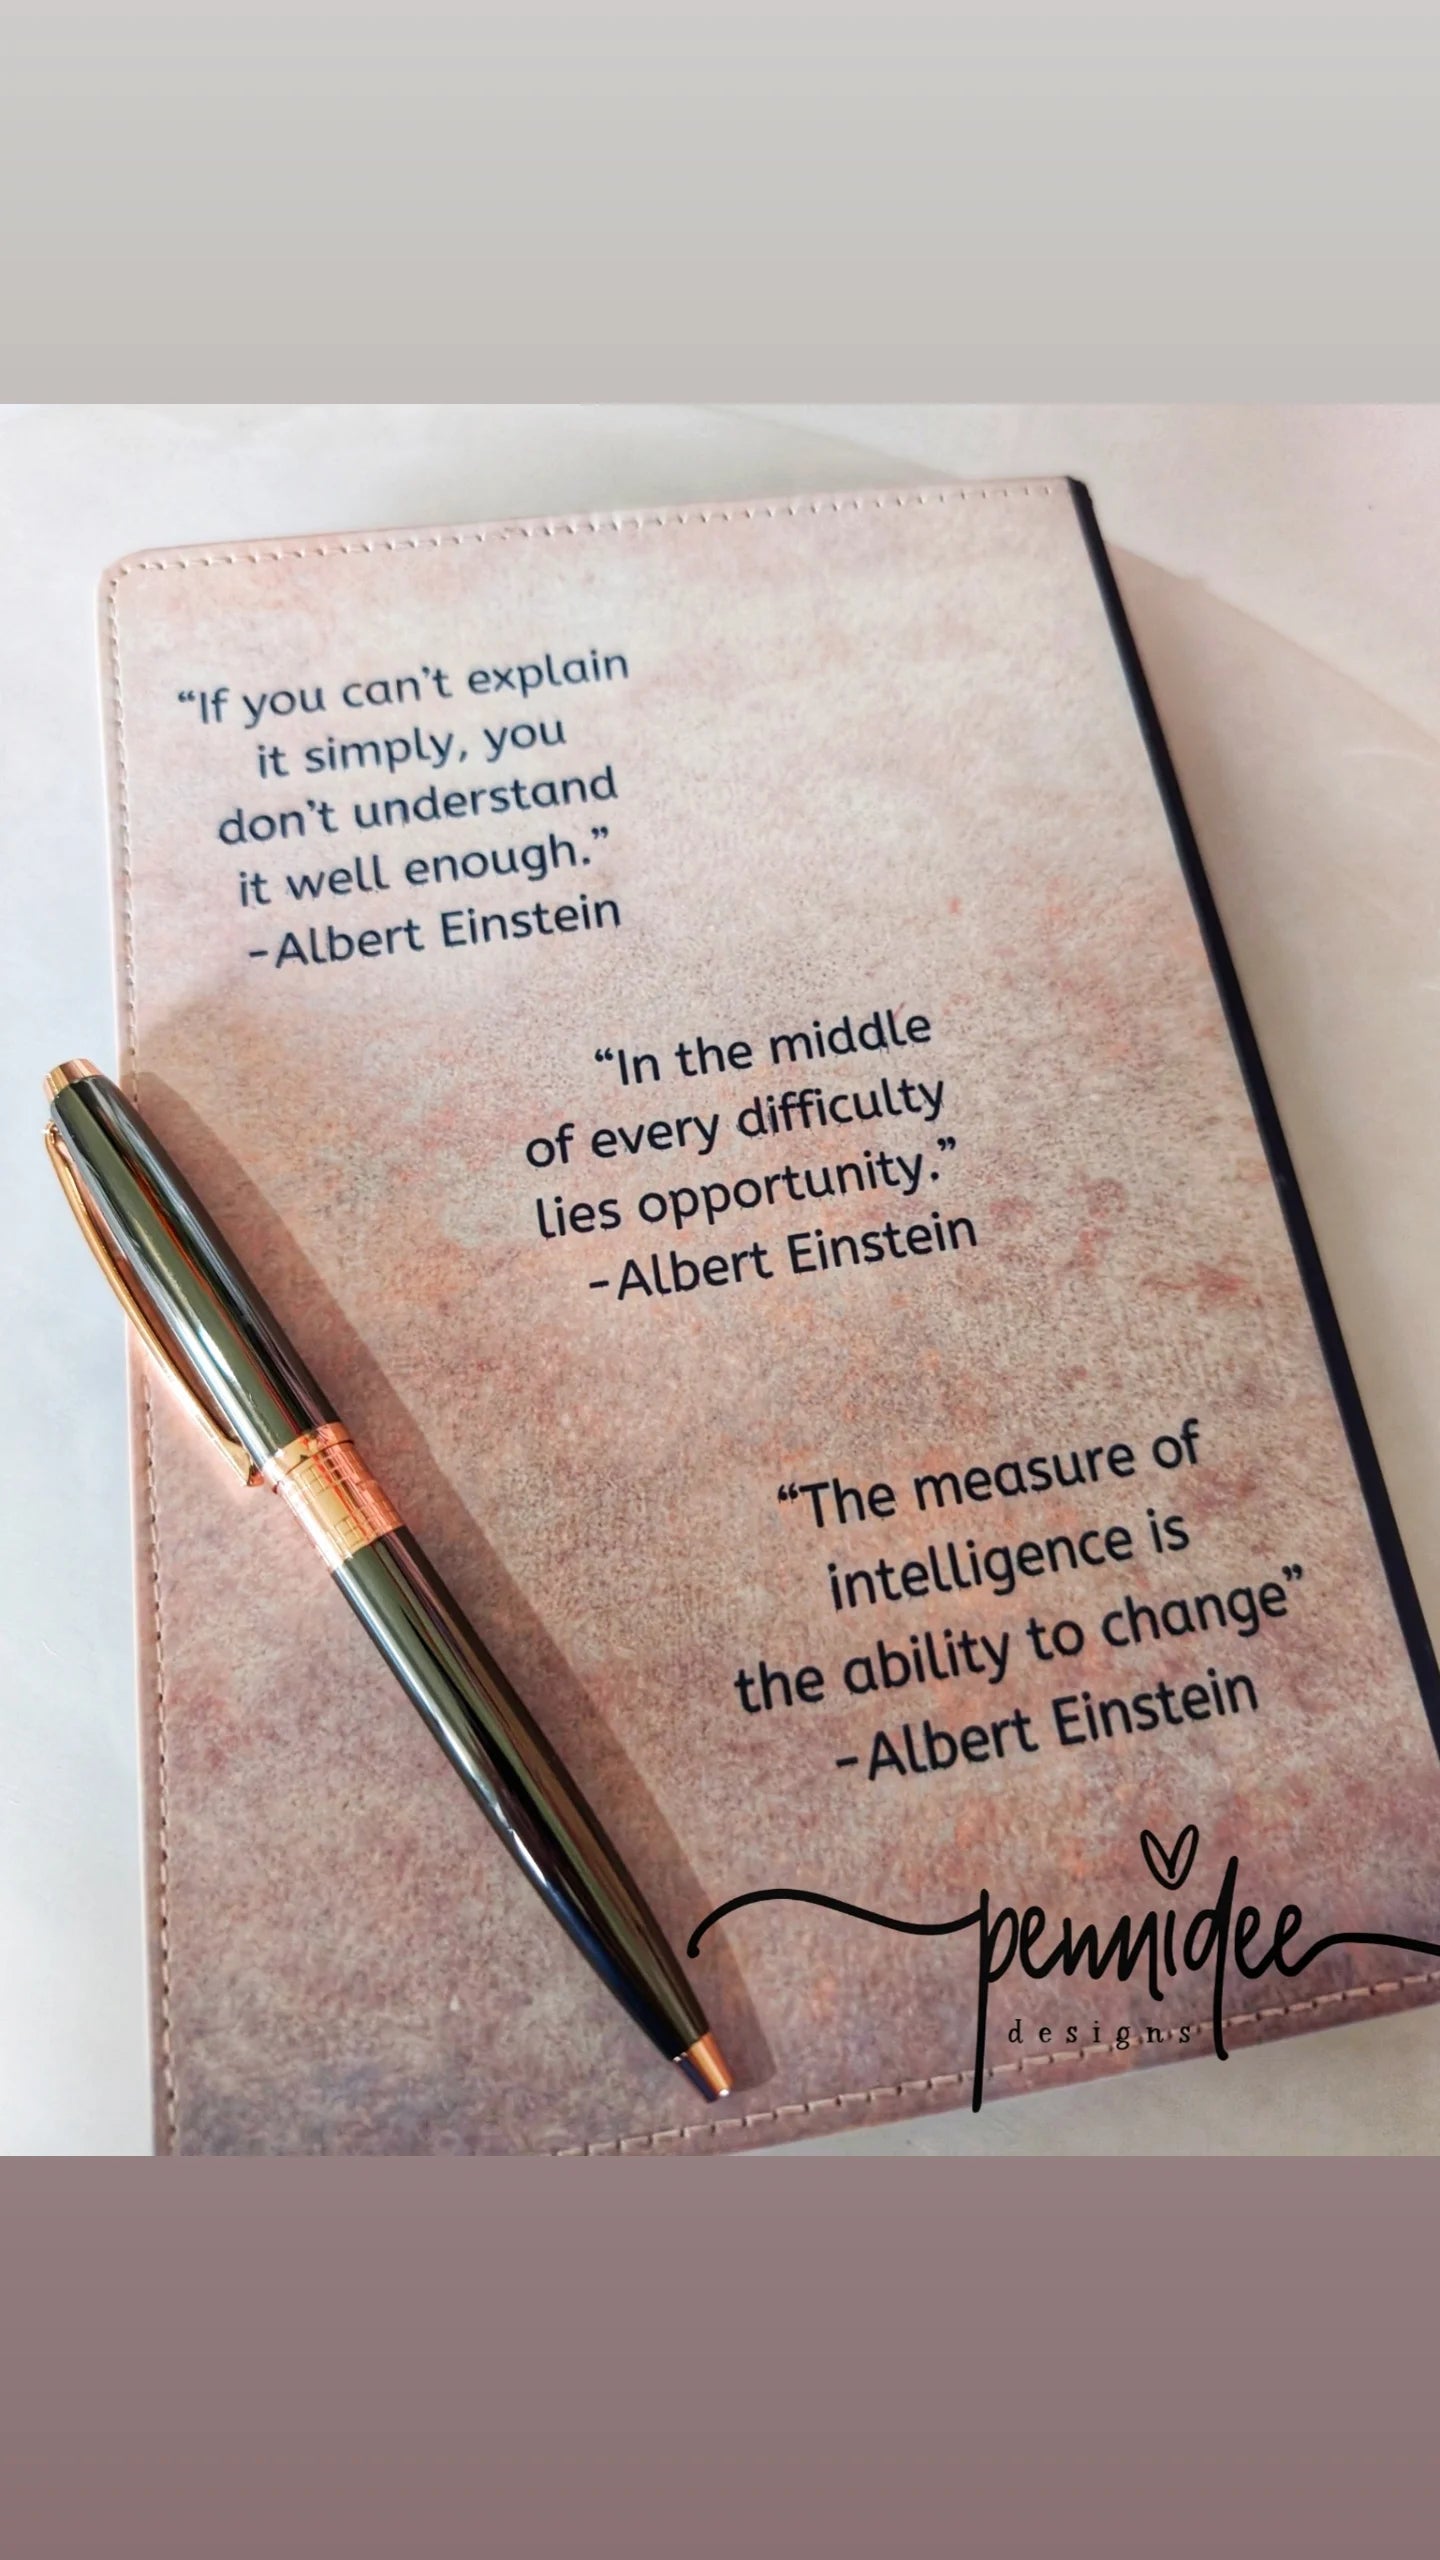 “If you can’t explain
it simply, you
don’t understand
it well enough.”
-Albert Einstein
“In the middle
of every difficulty
lies opportunity.”
-Albert Einstein
“The measure of
intelligence is
the ability to change”
-Albert Einstein
pennidee
designs